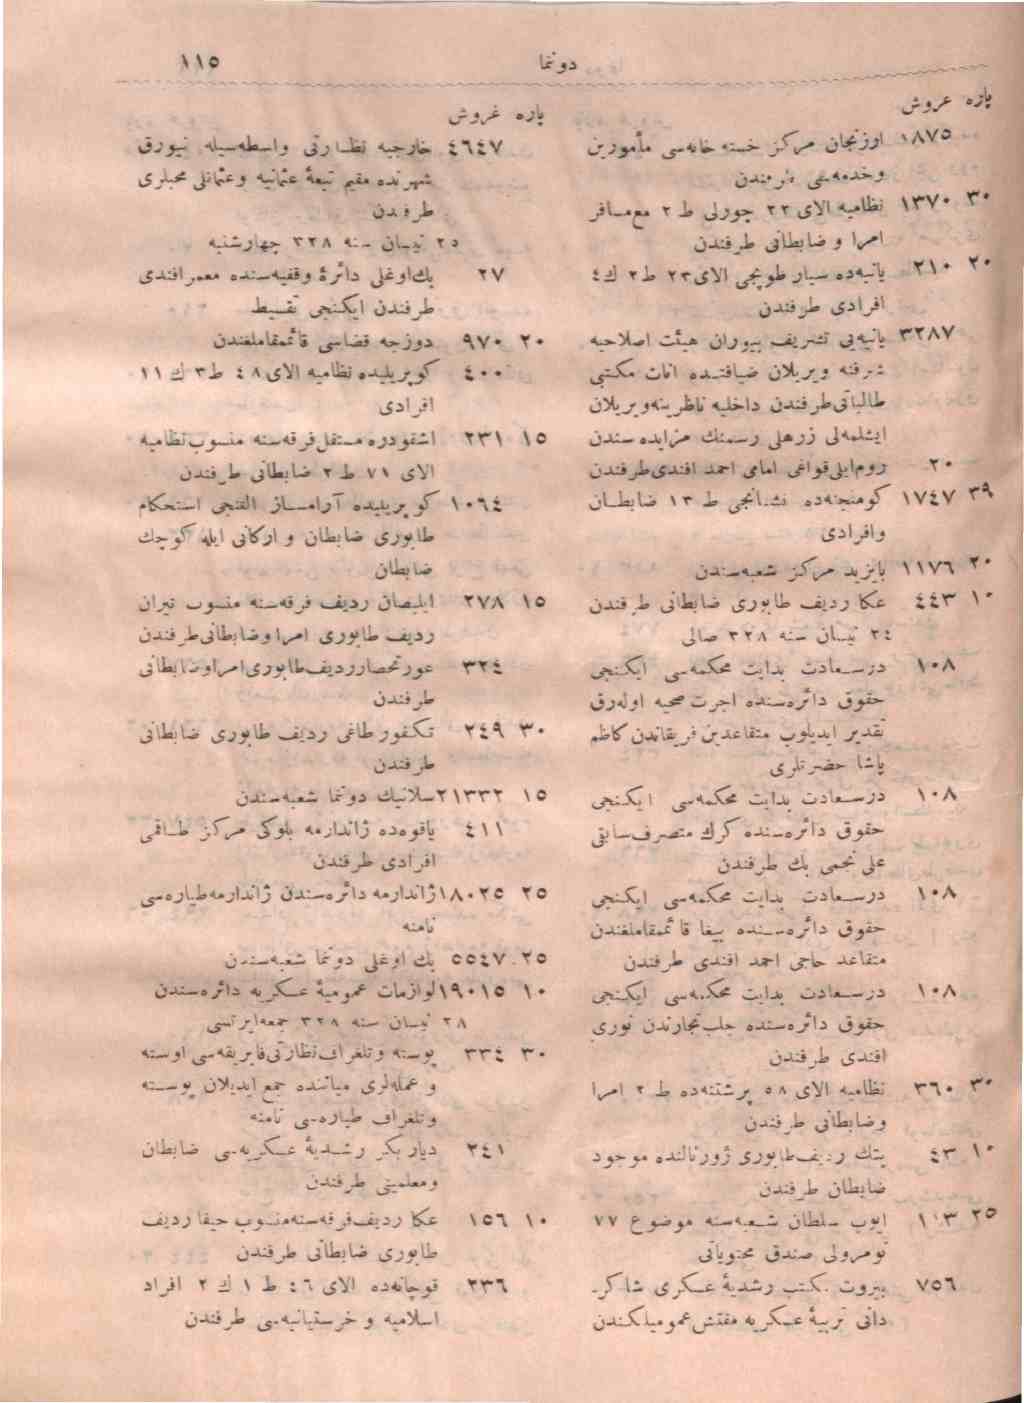 دونما
١١٥
پاره غروش
١٨٧٥ اوزنجان مركز خسته خانه‌سی مأمورین
وخدمه‌سی طرفندن
٣٠ ١٣٧٠ نظامیه الای ٢٢ چورلی ط ٢ مع‌مسافر
امرا و ضابطانی طرفندن
٢٠ ٢١٠ یانیه‌ده سیار طوپجی الای ٢٣ ط ٢ ك ٤
افرادی طرفندن
٣٢٨٧ یانیه‌یی تشریف بیوران هیئت اصلاحیه
شرفنه ویریلان ضیافتده اناث مكتبی
طالباتی طرفندن داخلیه ناظرینه ویریلان
ایشلمه‌لی زرهلی رسمنك مزایده سندن
٢٠ روم‌ایلی قواغی امامی احمد افندی طرفندن
٣٩ ١٧٤٧ كومنجنه‌ده نشانجی ط ١٣ ضابطان
وافرادی
٢٠ ١١٧٦ بایزید مركز شعبه‌سندن
١٠ ٤٤٣ عكا ردیف طابوری ضابطانی طرفندن
٢٤ نیسان سنه ٣٢٨ صالی
١٠٨ درسعادت بدایت محكمه‌سی ایكنجی
حقوق دائره‌سنده اجرت صحیه اوله‌رق
تقدیر ایدیلوب متقاعدین فریقاندن كاظم
پاشا حضرتلری
١٠٨ درسعادت بدایت محكمه‌سی ایكنجی
حقوق دائره‌سنده كرك متصرف سابقی
علی نجمی بك طرفندن
١٠٨ درسعادت بدایت محكمه‌سی ایكنجی
حقوق دائره‌سنده بیغا قائممقاملغندن
متقاعد حاجی احمد افندی طرفندن
١٠٨ درسعادت بدایت محكمه‌سی ایكنجی
حقوق دائره‌سنده جلب‌تجارندن نوری
افندی طرفندن
٣٠ ٣٦٠ نظامیه الای ٥٨ پرشتنه‌ده ط ٢ امرا
وضابطانی طرفندن
١٠ ٤٣ ردیف طابوری ژورنالنده موجود
ضابطان طرفندن
٢٥ ١١٣ ایوب سلطان شعبه‌سنه موضوع ٧٧
نومرولی صندق محتویاتی
٧٥٦ بیروت مكتب رشدیهٔ عسكری شاكر
دانی تربیهٔ عسكریه مفتش عمومیلكندن
پاره غروش
٤٦٤٧ خارجیه نظارتی واسطه‌سیله نیورق
شهرنده مقیم تبعهٔ عثمانیه وعثمانلی محبلری
طرفندن
٢٥ نیسان سنه ٣٢٨ چهارشنبه
٢٧ بك‌اوغلی دائرهٔ وقفیه‌سنده معمر افندی
طرفندن ایكنجی تقسیط
٢٠ ٩٧٠ دوزجه قضاسی قائممقاملغندن
٤٠٠ كوپریلیده نظامیه الای ٤٨ ط ٣ ك ١١
افرادی
١٥ ٢٣١ اشقودره مستقل فرقه‌سنه منسوب نظامیه
الای ٧١ ط ٢ ضابطانی طرفندن
١٠٦٤ كوپریلیده آرامساز التنجی استحكام
طابوری ضابطان و اركانی ایله كوچك
ضابطان
١٥ ٢٧٨ ایلبصان ردیف فرقه‌سنه منسوب تیران
ردیف طابوری امرا وضابطانی طرفندن
٣٢٤ عورتحصار ردیف طابوری امرا وضابطانی
طرفندن
٣٠ ٢٤٩ تكفور طاغی ردیف طابوری ضابطانی
طرفندن
١٥ ٢١٣٣٢ سلانیك دونما شعبه‌سندن
٤١١ یاقوه‌ده ژاندارمه بلوكی مركز طاقمی
افرادی طرفندن
٢٥ ١٨٠٢٥ ژاندارمه دائره‌سندن ژاندارمه طیاره‌سی
نامنه
٢٥ ٥٥٤٧ بك اوغلی دونما شعبه‌سندن
١٠ ١٩٠١٥ لوازمات عمومیهٔ عسكریه دائره‌سندن
٢٨ نیسان سنه ٣٢٨ جمعه‌ایرتسی
٣٠ ٣٣٤ پوسته وتلغراف نظارتی فابریقه‌سی اوسته
و عمله‌لری میاننده جمع ایدیلان پوسته
وتلغراف طیاره‌سی نامنه
٢٤١ دیاربكر رشدیهٔ عسكریه‌سی ضابطان
ومعلمینی طرفندن
١٠ ١٥٦ عكا ردیف فرقه‌سنه منسوب حیفا ردیف
طابوری ضابطانی طرفندن
٢٣٦ قوچانه‌ده الای ٤٦ ط ١ ك ٢ افراد
اسلامیه و خرستیانیه‌سی طرفندن